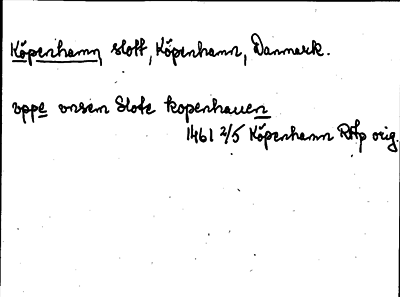 Köpenhamn, slott, Köpenhamn, Danmark.
oppe vnsem Slote kopenhauen
1461 2/5 Köpenhamn RAp orig.